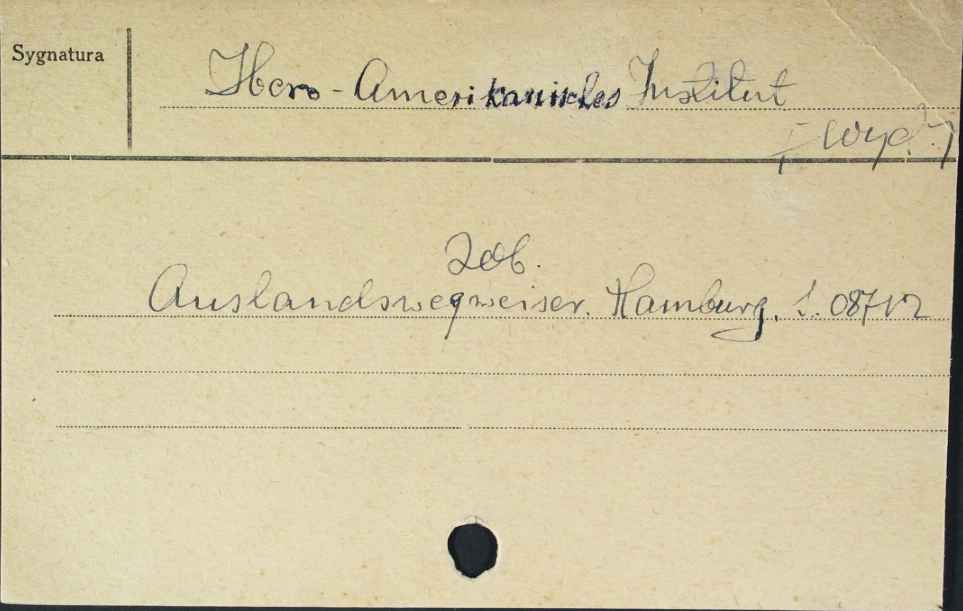 Sygnatura
Ibero-Amerikanisches Institut
[wyd.]
Zob.
Auslandswegweiser. Hamburg. S. 08712